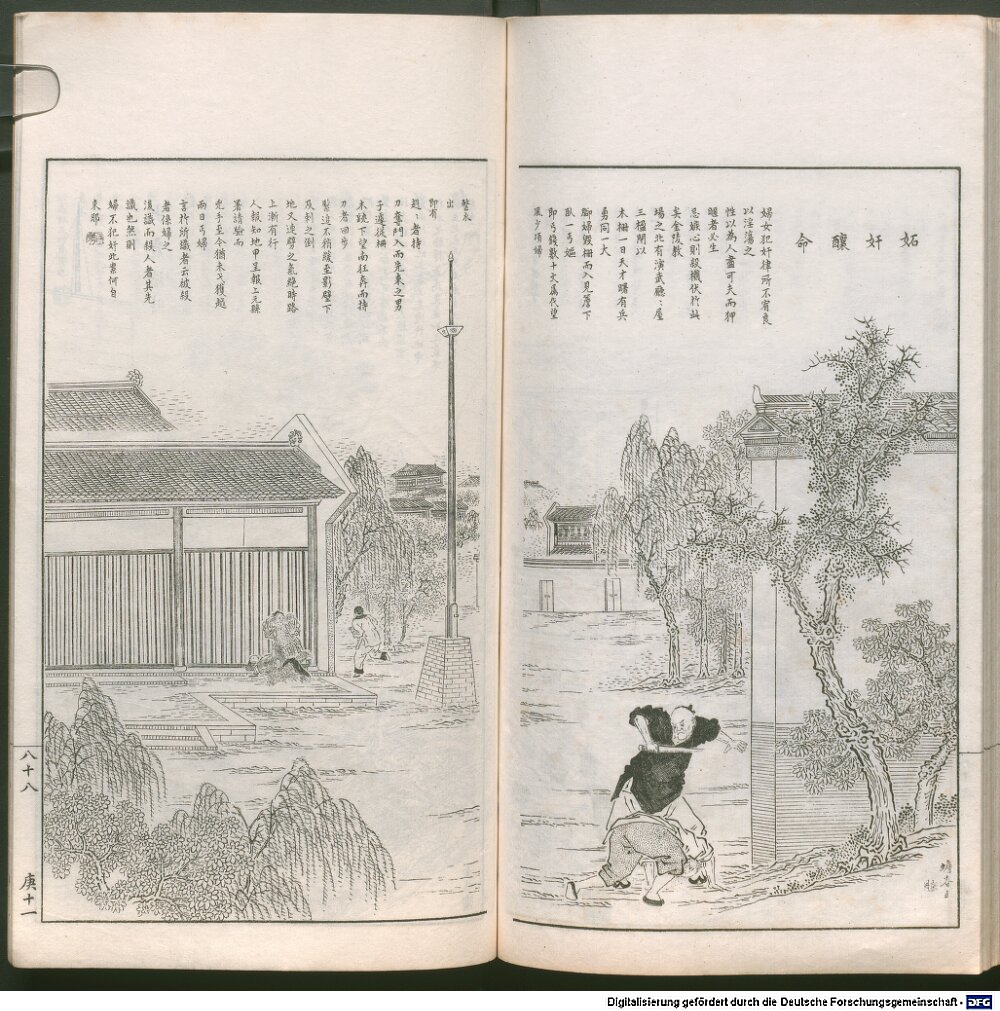 妬奸釀命
婦女犯奸律所不宥良
以淫蕩之
性以為人盡可夫而狎
暱者必生
忌嫉心則殺機伏於此
矣金陵教
場之北有演武廳、屋
三楹閑以
木柵一日天才曙有兵
勇同一犬
腳婦毀柵而入見簷下
臥一丐嫗
即與錢數十文屬代望
風少頃婦
整衣
出
即有
趙、者持
刀奪門入而先來之男
子遽從柵
木跳下望南狂奔而持
刀者回步
緊追不稍緩至影壁下
及刺之倒
地又連劈之氣絕時路
上漸有行
人報知地甲呈報上元縣
署請驗而
兇手至今猶未弋獲越
兩日丐婦
言於所識者云被殺
者係婦之
後識而殺人者其先
識也然則
婦不犯奸此案何自
來耶
八十八
庚十一
蟾香
Digitalisierung gefördert durch die Deutsche Forschungsgemeinschaft - DFG